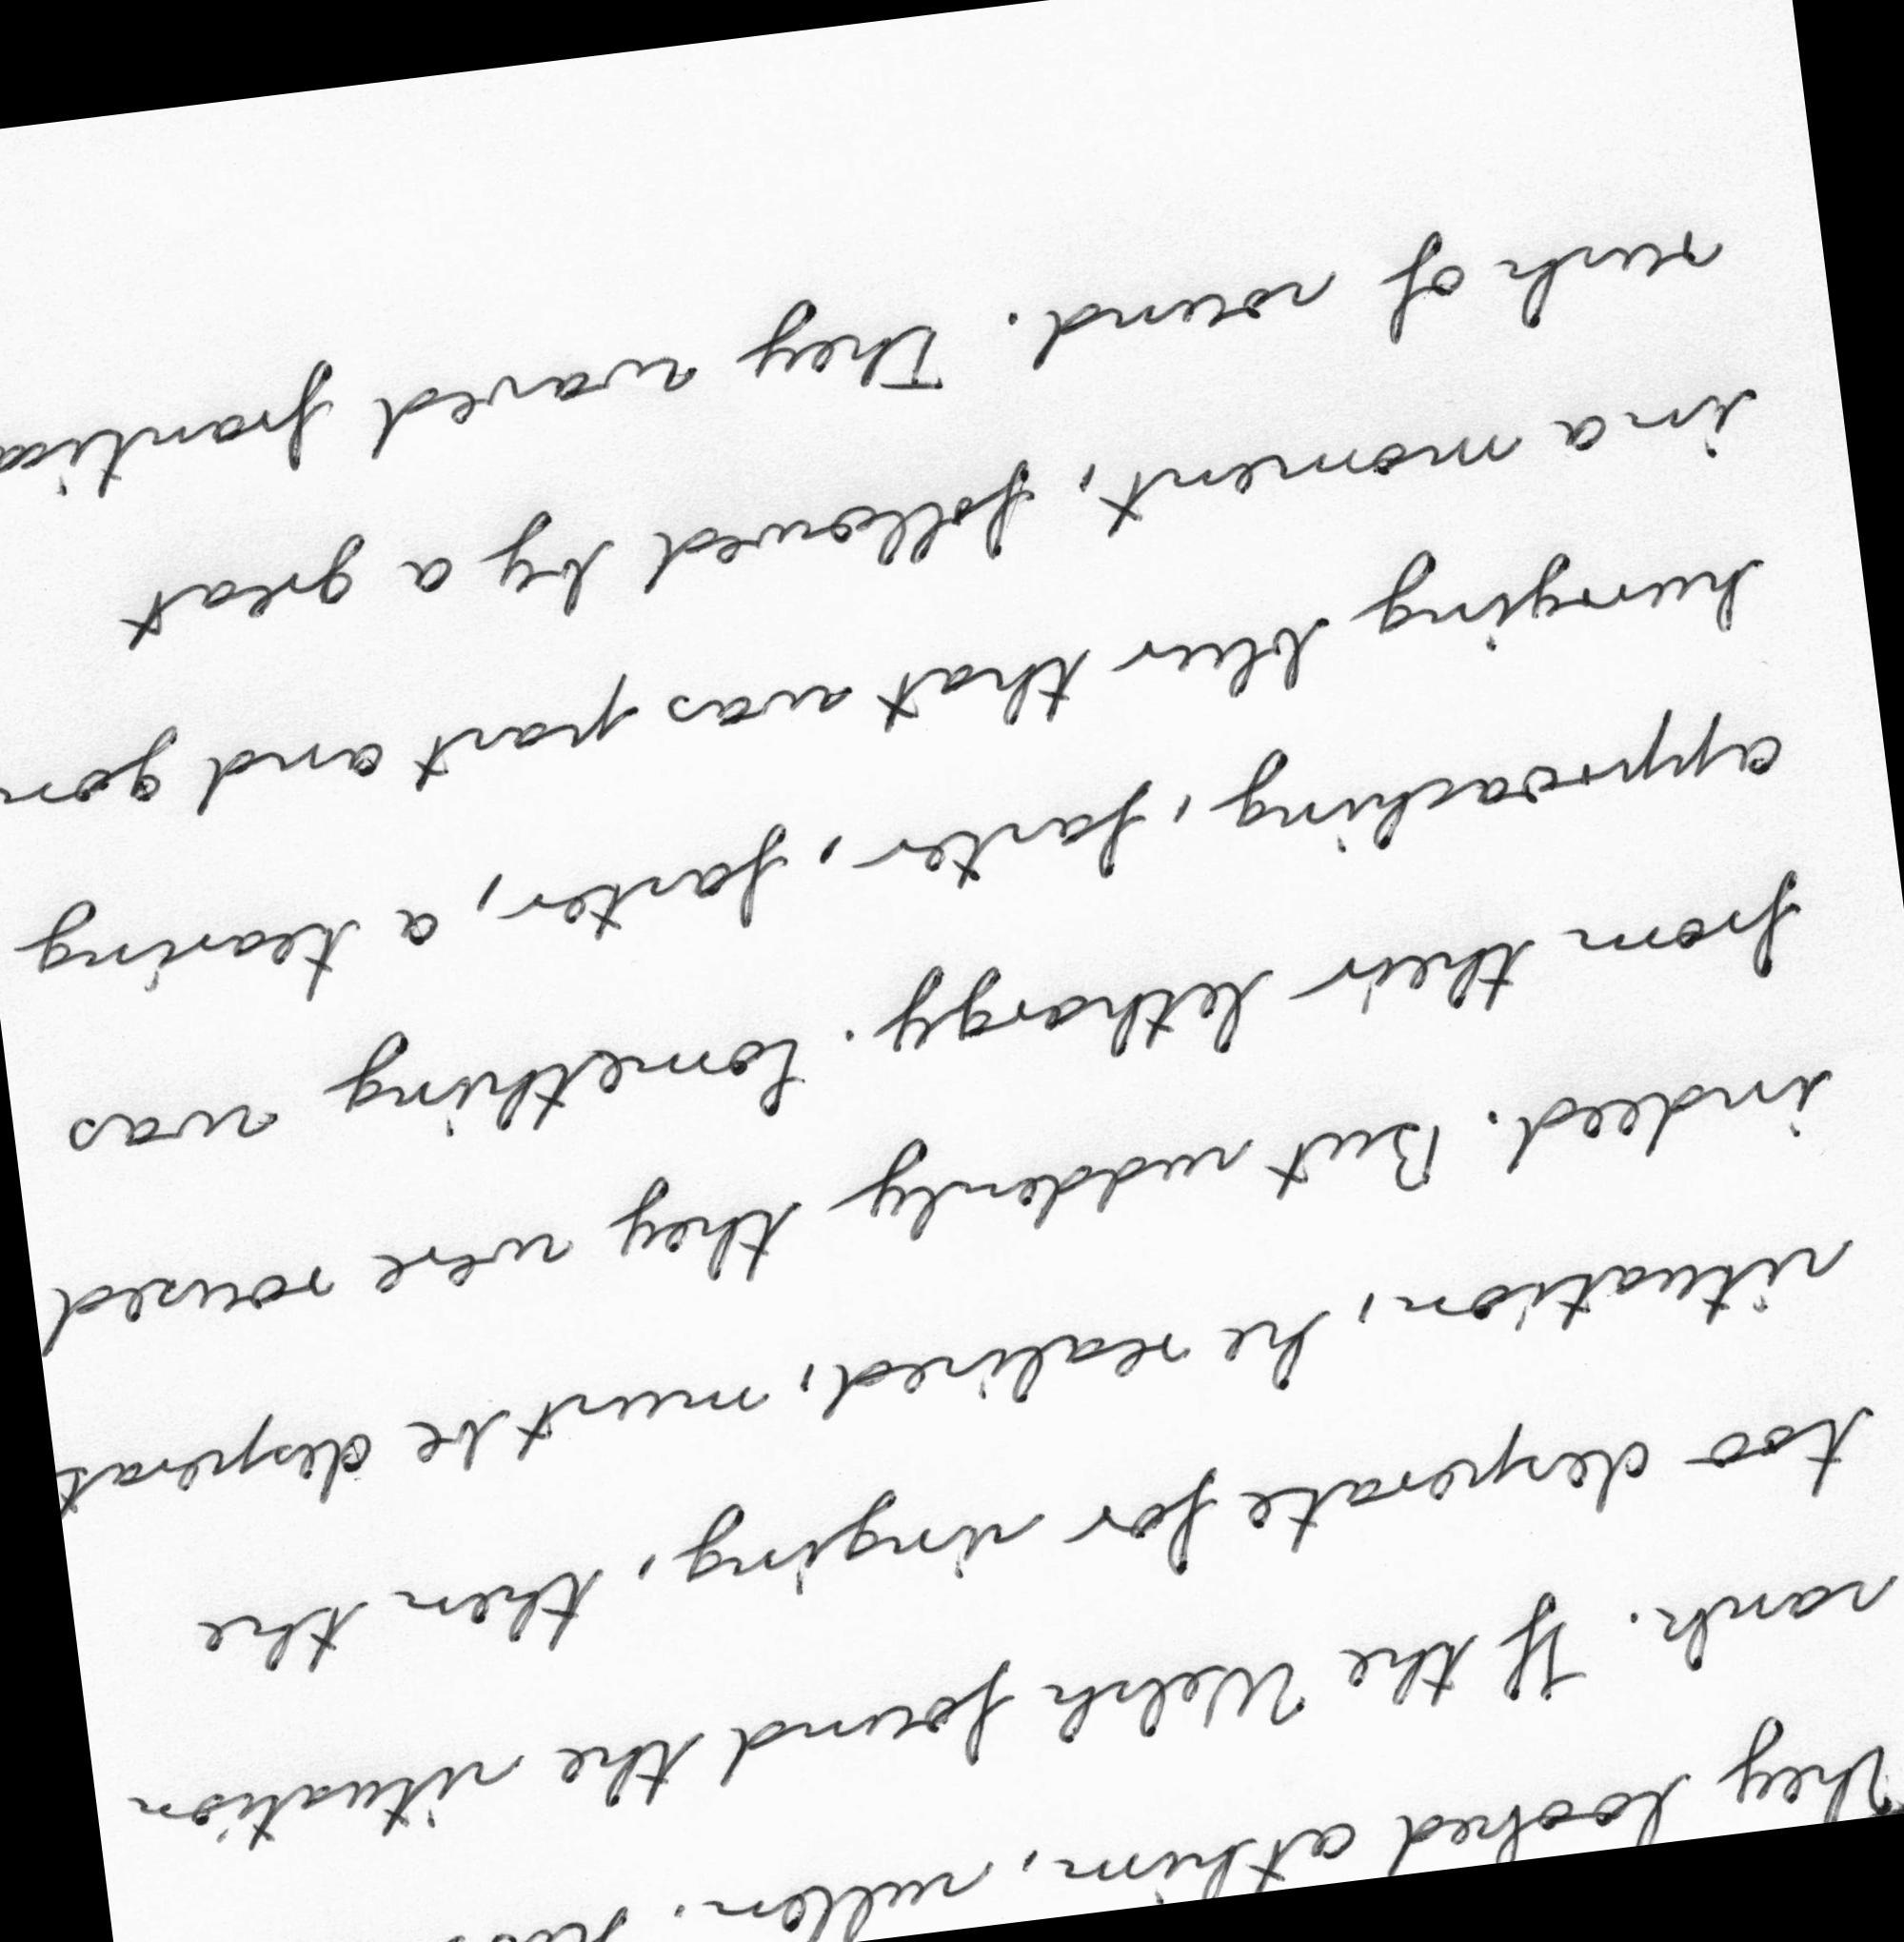 They looked at him, sullen.
sank. If the Welsh found the situation
too desperate for singing, then the
situation, he realised, must be desperat
indeed. But suddenly they were roused
from their lethargy. Something was
approaching, faster, faster, a tearing
hurrying blur that was past and gon
in a moment, followed by a great
rush of sound. They waved frantica